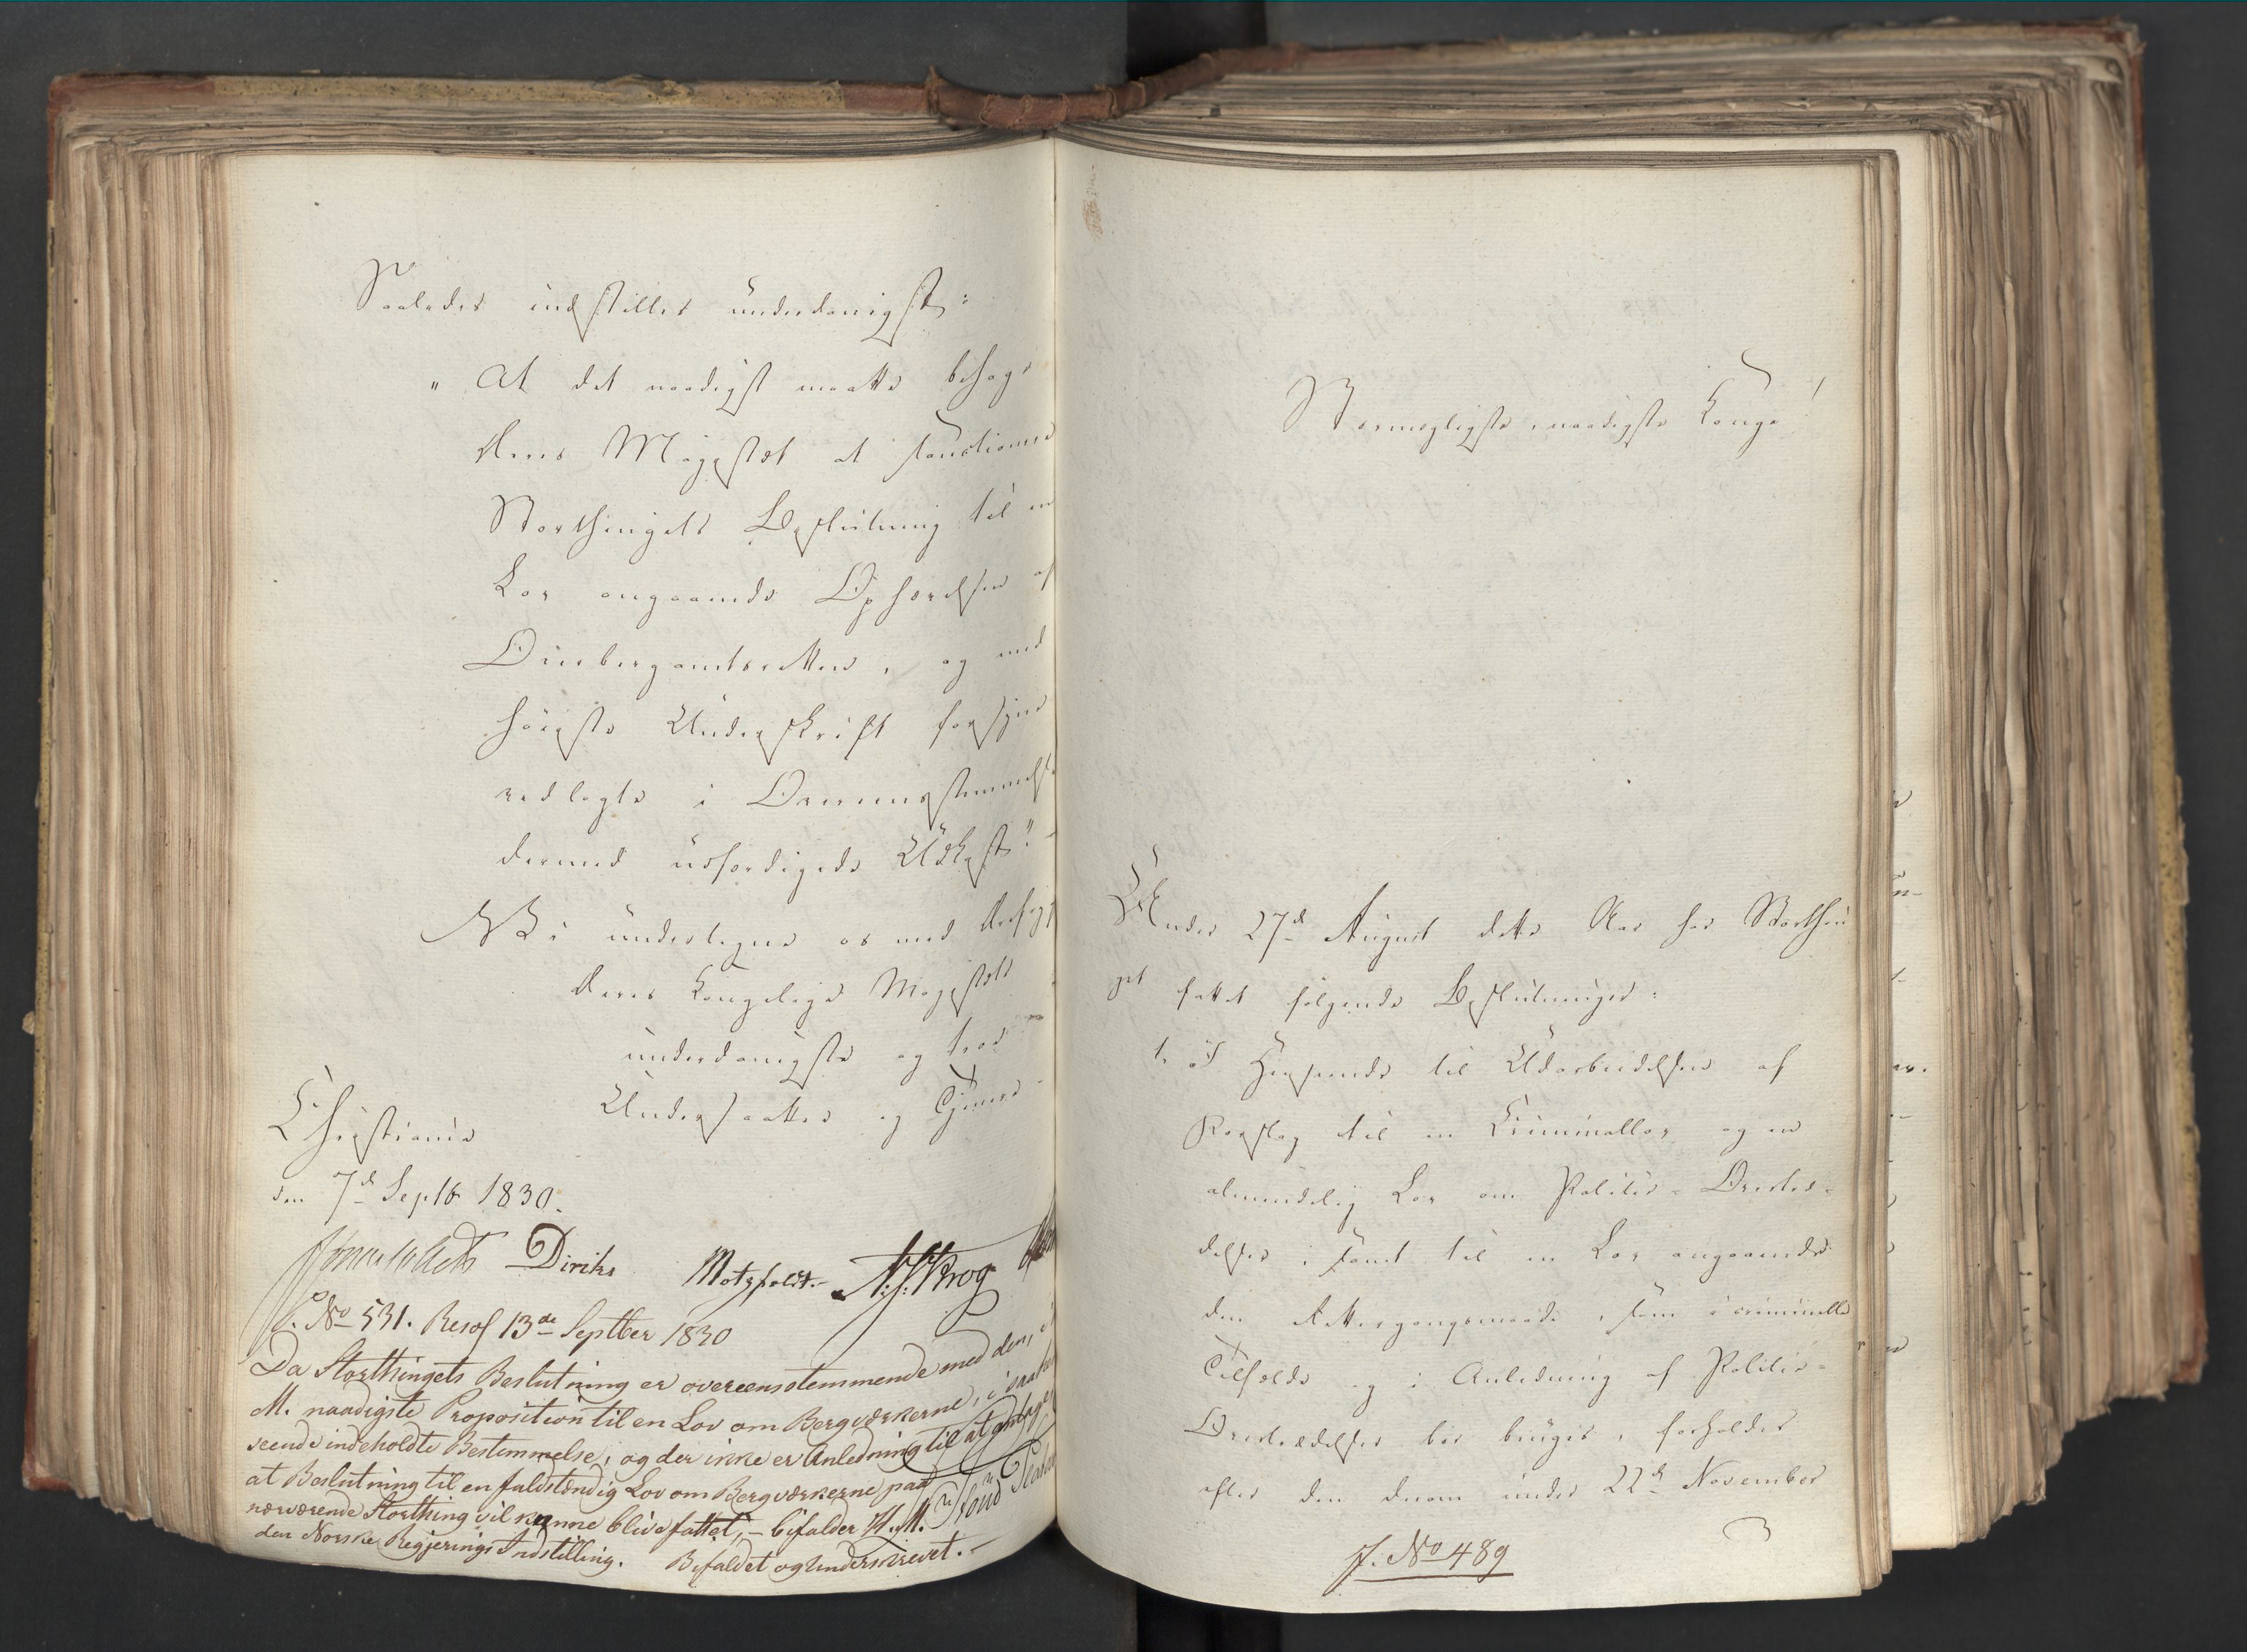 Saaledes indstilles underdanigst:
„At det naadigst maatte behage
Deres Majestæt at sanctionere
Storthingets Beslutning til en
Lov angaaende Ophørelsen af
Overbergamtsretten, og med
høieste Underskrift forsyne
vedlagte i Overeensstemmelse
dermed udfærdigede Udkast".
Vi undertegne os med
Deres Kongelige Majestæts
underdanigste og troe
Undersaatter og Tjenere
Christiania
den 7d Septb 1830.
Jonas Collett Diriks Motzfeldt. N. J. Krog
P. No 531. Resol 13de Septber 1830
Da Storthingets Beslutning er overeensstemmende med den, i
M. naadigste Proposition til en Lov om Bergværkerne, i saa
seende indeholdte Bestemmelse, og der ikke er Anledning til at antage
at Beslutning til en fuldstændig Lov om Bergværkerne paa
nærværende Storthing vil kunne blive fattet, – bifalder H. M.
den Norske Regjerings Indstilling. Bifaldet og Underskrevet. –
Stormægtigste, naadigste Konge!
Under 27d August dette Aar har Storthin
get fattet følgende Beslutninger:
1. I Henseende til Udarbeidelsen af
Forslag til en Criminallov og en
almindelig Lov om Politie-Overtræ-
delser, samt til en Lov angaaende
den Rettergangsmaade, som i criminelle
Tilfælde og i Anledning af Politie-
Overtrædelser bør bruges, forholdes
efter den derom under 22d November
J. No 489